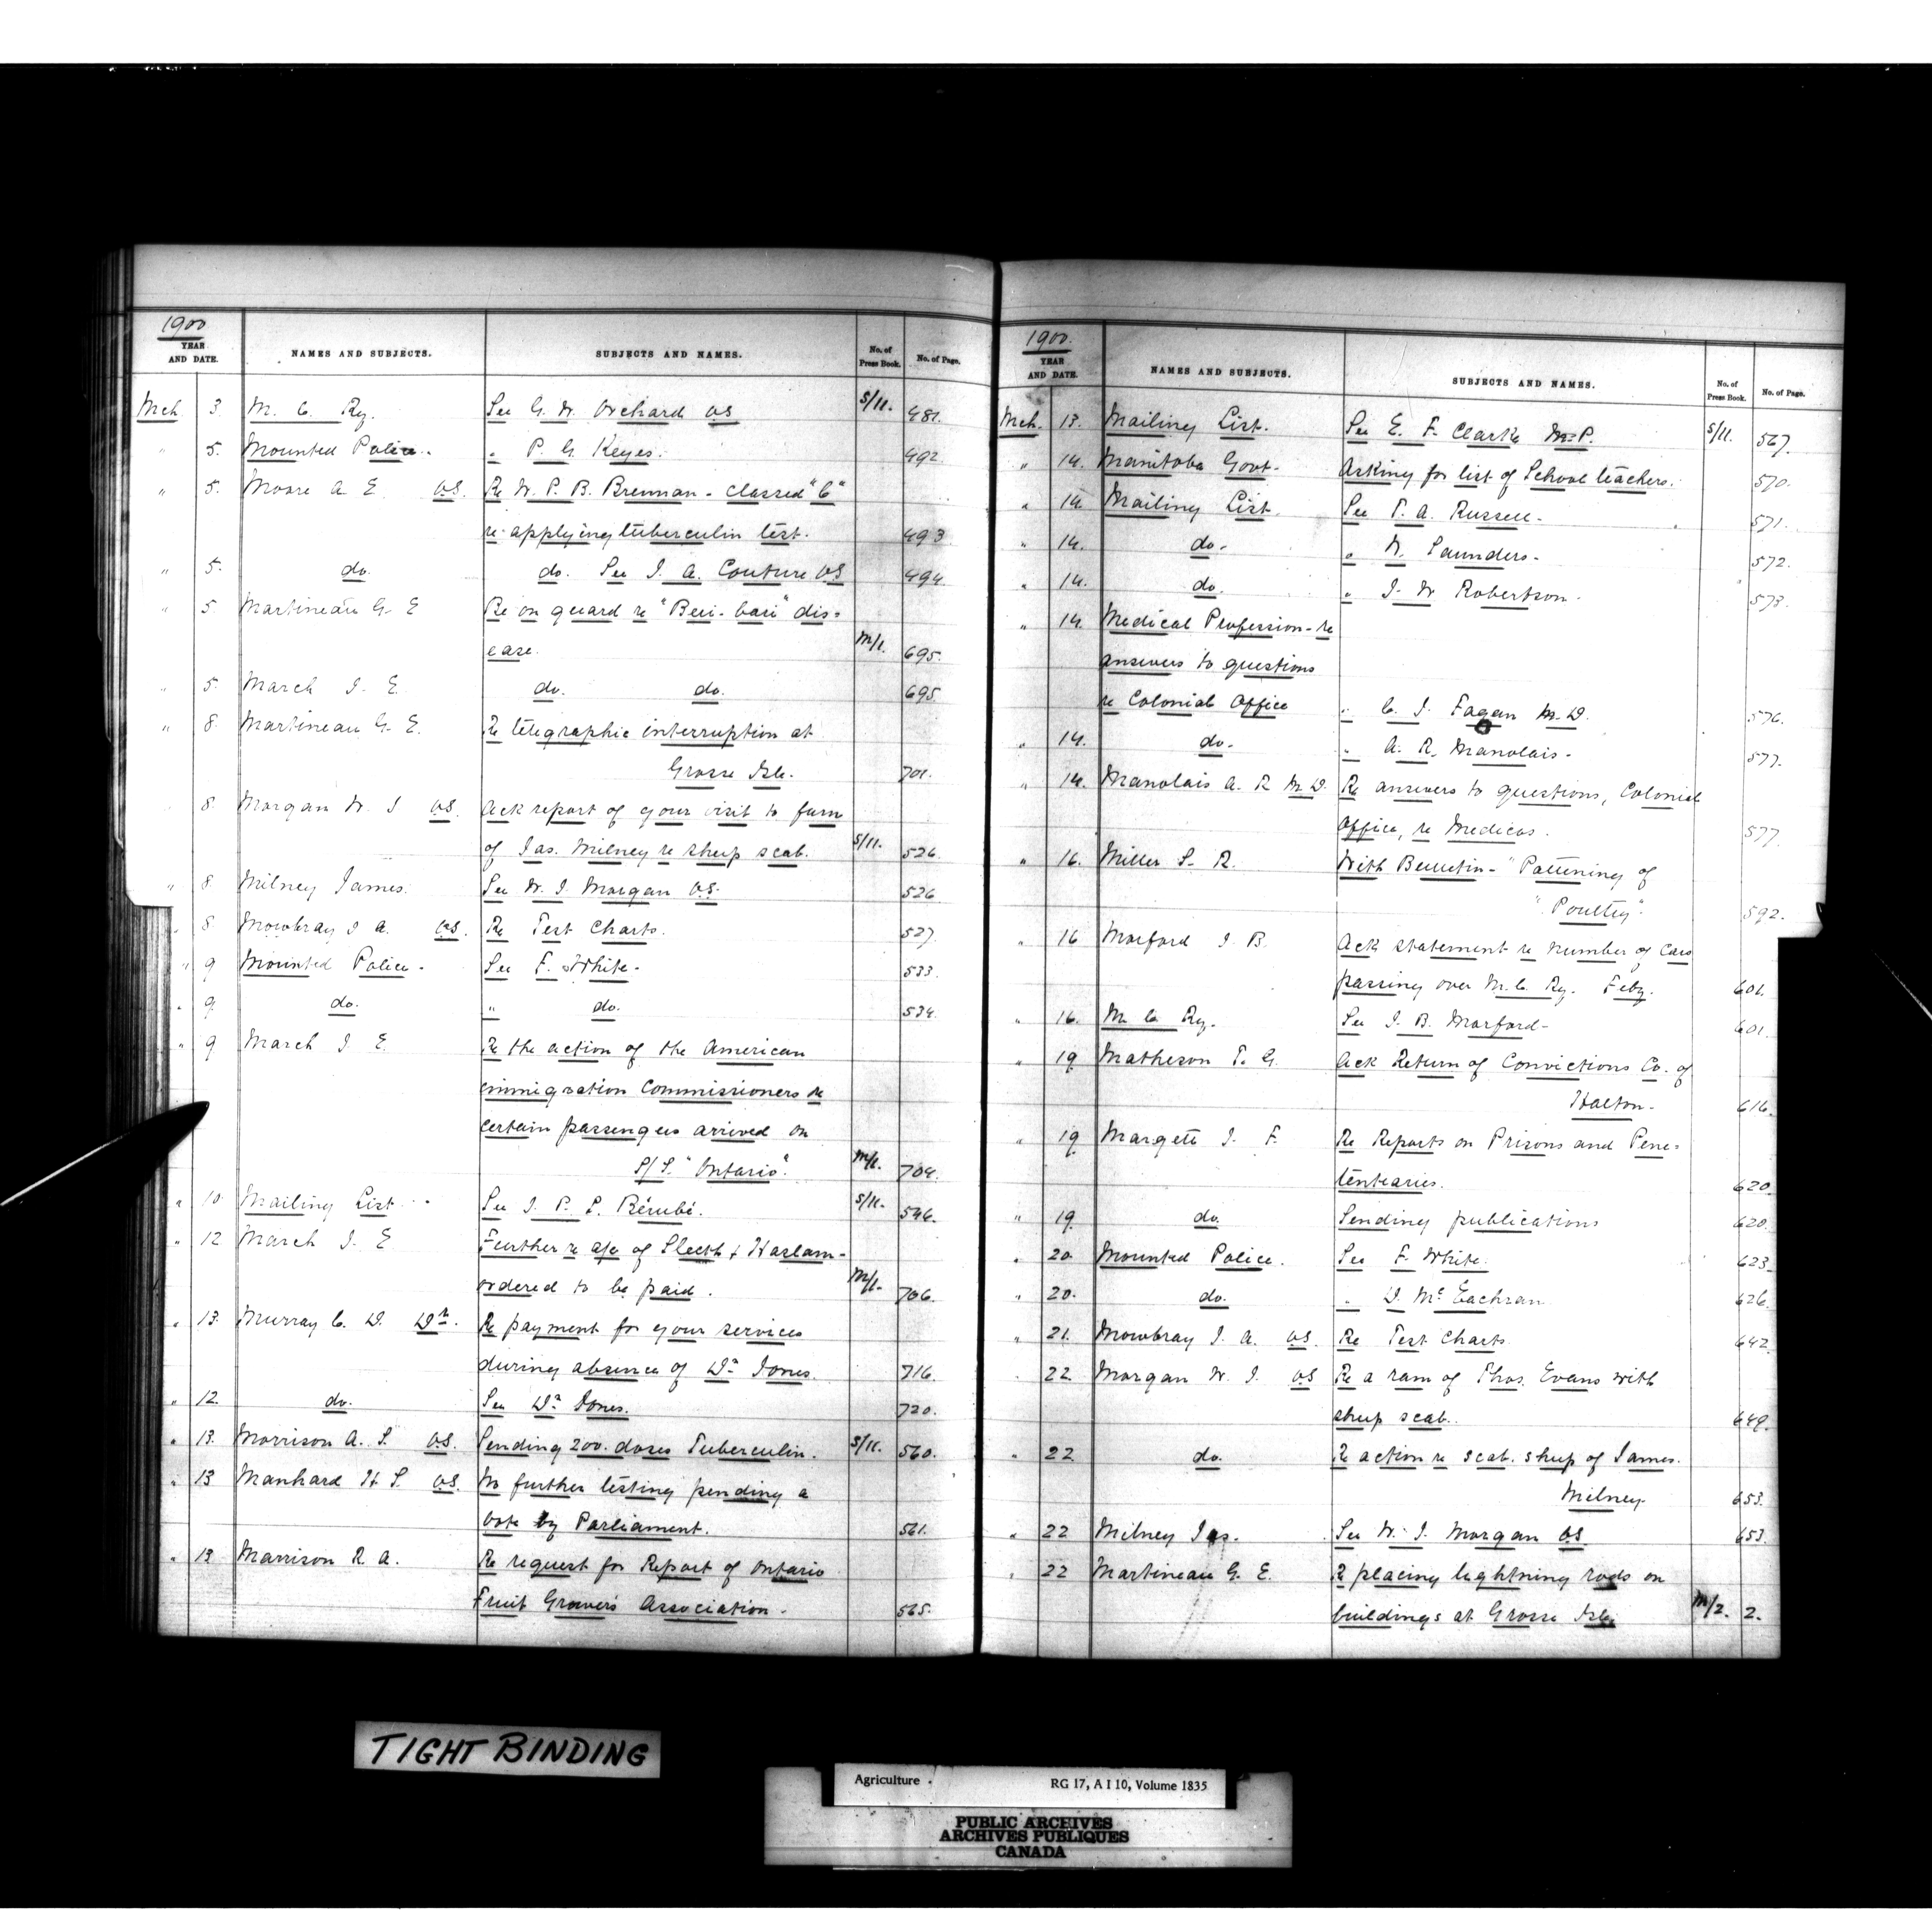 1900
YEAR AND DATE. NAMES AND SUBJECTS. SUBJECTS AND NAMES. No. of Press Book. No. of Page.
Mch 3. M. C. Ry. See G. W. Orchard VS S/11. 481.
" 5. Mounted Police. " P. G. Keyes. 492
" 5. Moore A. E. VS. Re W. P. B. Brennan - Classed "C"
re applying tuberculin test. 493
" 5. do. do. See J. A. Couture VS 494
" 5 Martineau G. E Be on guard re "Beri-bari" dis=
ease. M/1. 695.
" 5. March J. E. do. do. 695
" 8. Martineau G. E. Re telegraphic interruption at
Grosse Isle. 701.
" 8. Morgan W. J VS. Ack report of your visit to farm
of Jas. Milney re sheep scab. S/11. 526.
" 8. Milney James. See W. J. Morgan VS. 526
" 8 Mowbray J A. VS. Re Test Charts. 527.
" 9 Mounted Police - See F. White - 533
" 9. do. " do. 534.
" 9 March J E. Re the action of the American
immigration Commissioners re
certain passengers arrived on
S/S. "Ontario". M/1. 704.
" 10 Mailing List See J. P. P. Bérubé. S/11. 546.
" 12 March J. E Further re a/c of Sleeth & Haslam -
ordered to be paid. M/1. 706.
" 13. Murray C. D. Dr. Re payment for your services
during absence of Dr Jones. 716
" 12. do. See Dr Jones. 720.
" 13. Morrison A. S. VS. Sending 200 doses Tuberculin. S/11. 560.
" 13 Manhard H S. VS. No further testing pending a
vote by Parliament. 561.
" 13 Marrison R. A. Re request for Report of Ontario
Fruit Growers Association - 565.
1900.
YEAR AND DATE. NAMES AND SUBJECTS. SUBJECTS AND NAMES. No. of Press Book. No. of Page.
Mch. 13. Mailing List. See E. F. Clarke M.P. S/11. 567.
" 14. Manitoba Govt - Asking for list of School teachers. 570.
" 14 Mailing List See T. A. Russell - 571.
" 14. do - " W. Saunders - 572.
" 14. do. " J. W Robertson - 573.
" 14. Medical Profession - re
answers to questions
re Colonial Office " C. J. Fagan M.D. 576.
" 14. do - " A. R. Manolais - 577.
" 14. Manolais A. R M.D. Re answers to questions, Colonial
Office, re Medicos. 577.
" 16. Miller S. R. With Bulletin - "Fattening of
"Poultry". 592.
" 16 Morford J. B. Ack statement re number of Cars
passing over M. C. Ry. Feby. 601.
" 16. M. C. Ry. See J. B. Morford - 601.
" 19 Matheson T. G. Ack Return of Convictions Co. of
Halton - 616.
" 19 Margett J. F. Re Reports on Prisons and Pene=
tentiaries. 620.
" 19. do. Sending publications 620.
" 20. Mounted Police. See F. White. 623.
" 20. do. " D. McEachran 626.
" 21. Mowbray J. A. VS. Re Test Charts 642.
22. Morgan W. J. VS Re a ram of Thos. Evans with
sheep scab. 649.
" 22 do. Re action re scab. sheep of James.
Milney. 653.
" 22 Milney Jas. See W. J. Morgan VS 653.
" 22 Martineau G. E. Re placing lightning rods on
buildings at Grosse Isle M/2. 2.
TIGHT BINDING
Agriculture RG 17, A I 10, Volume 1835
PUBLIC ARCHIVES
ARCHIVES PUBLIQUES
CANADA